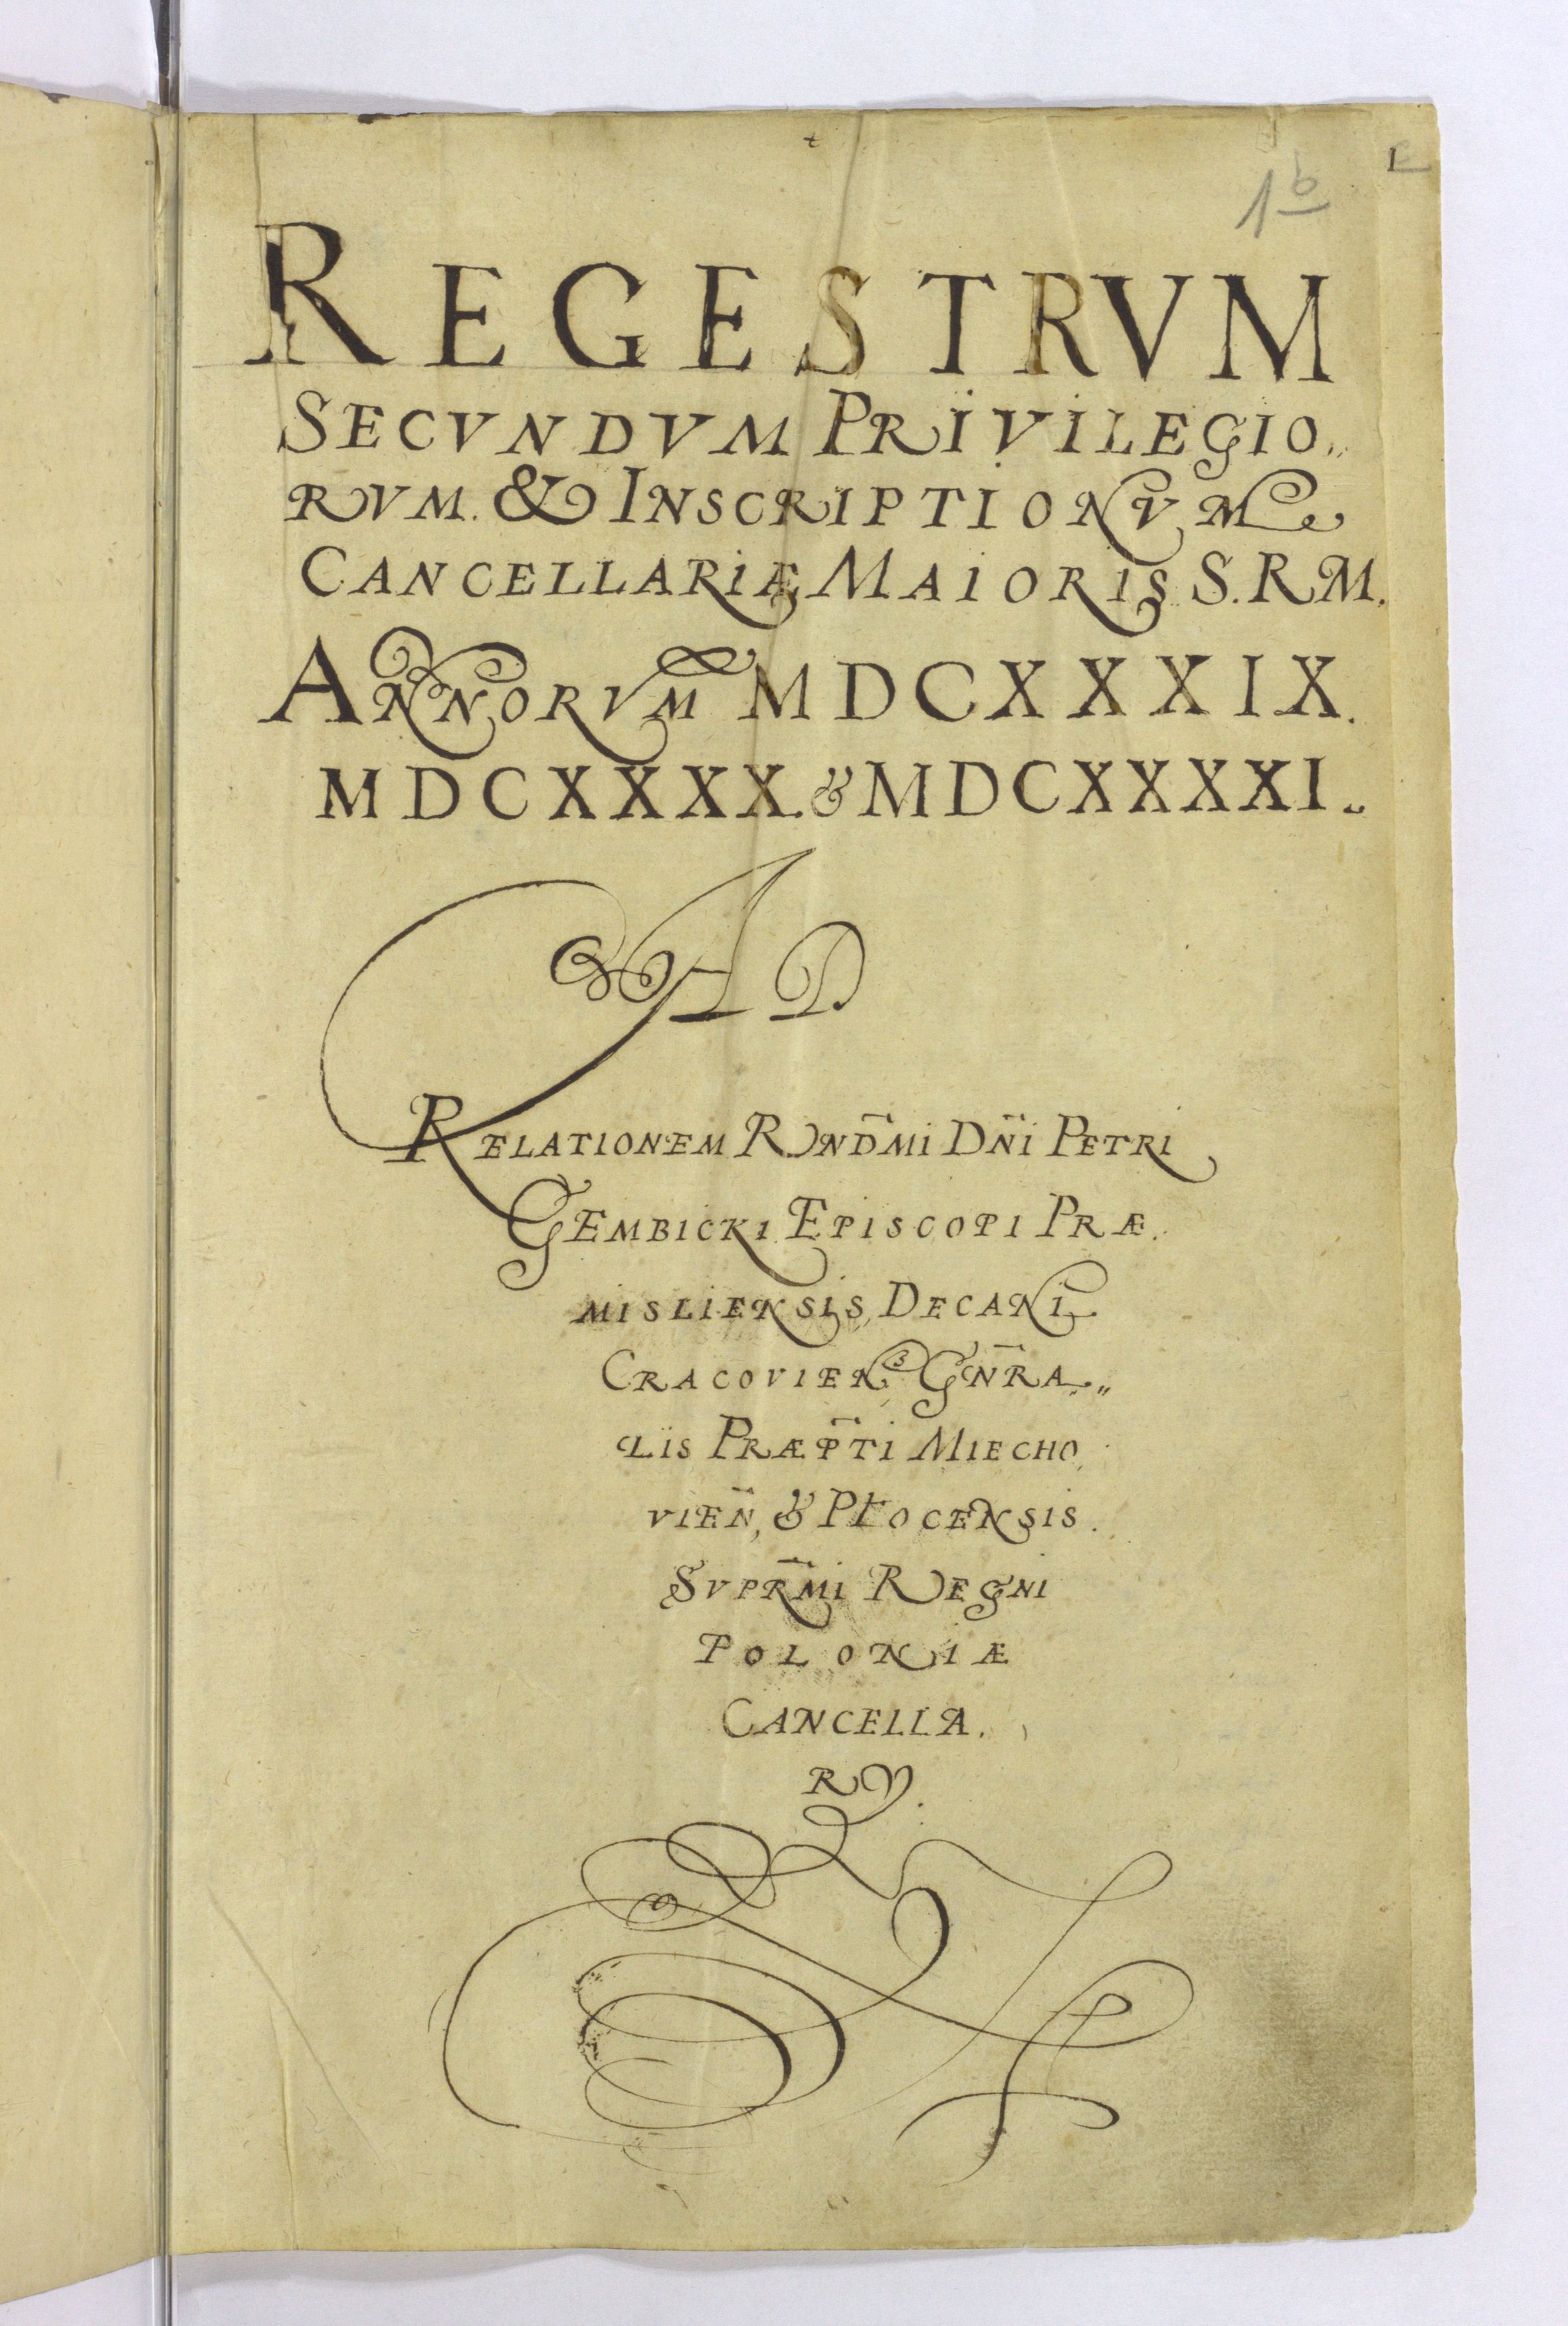 1b
REGESTRVM
SECVNDVM PRIVILEGIO,,
RVM. & INSCRIPTIONVM
CANCELLARIÆ MAIORIS S. R M.
ANNORVM MDCXXXIX.
MDCXXXX. & MDCXXXXI.
AD
RELATIONEM RNDM̃I DÑI PETRI
GEMBICKI EPISCOPI PRÆ.
MISLIENSIS, DECANI
CRACOVIEN GÑRA,,
LIS PRÆP̃TI MIECHO
VIEÑ, & PŁOCENSIS.
SVPRM̃I REGNI
POLONIÆ
CANCELLA.
RY.